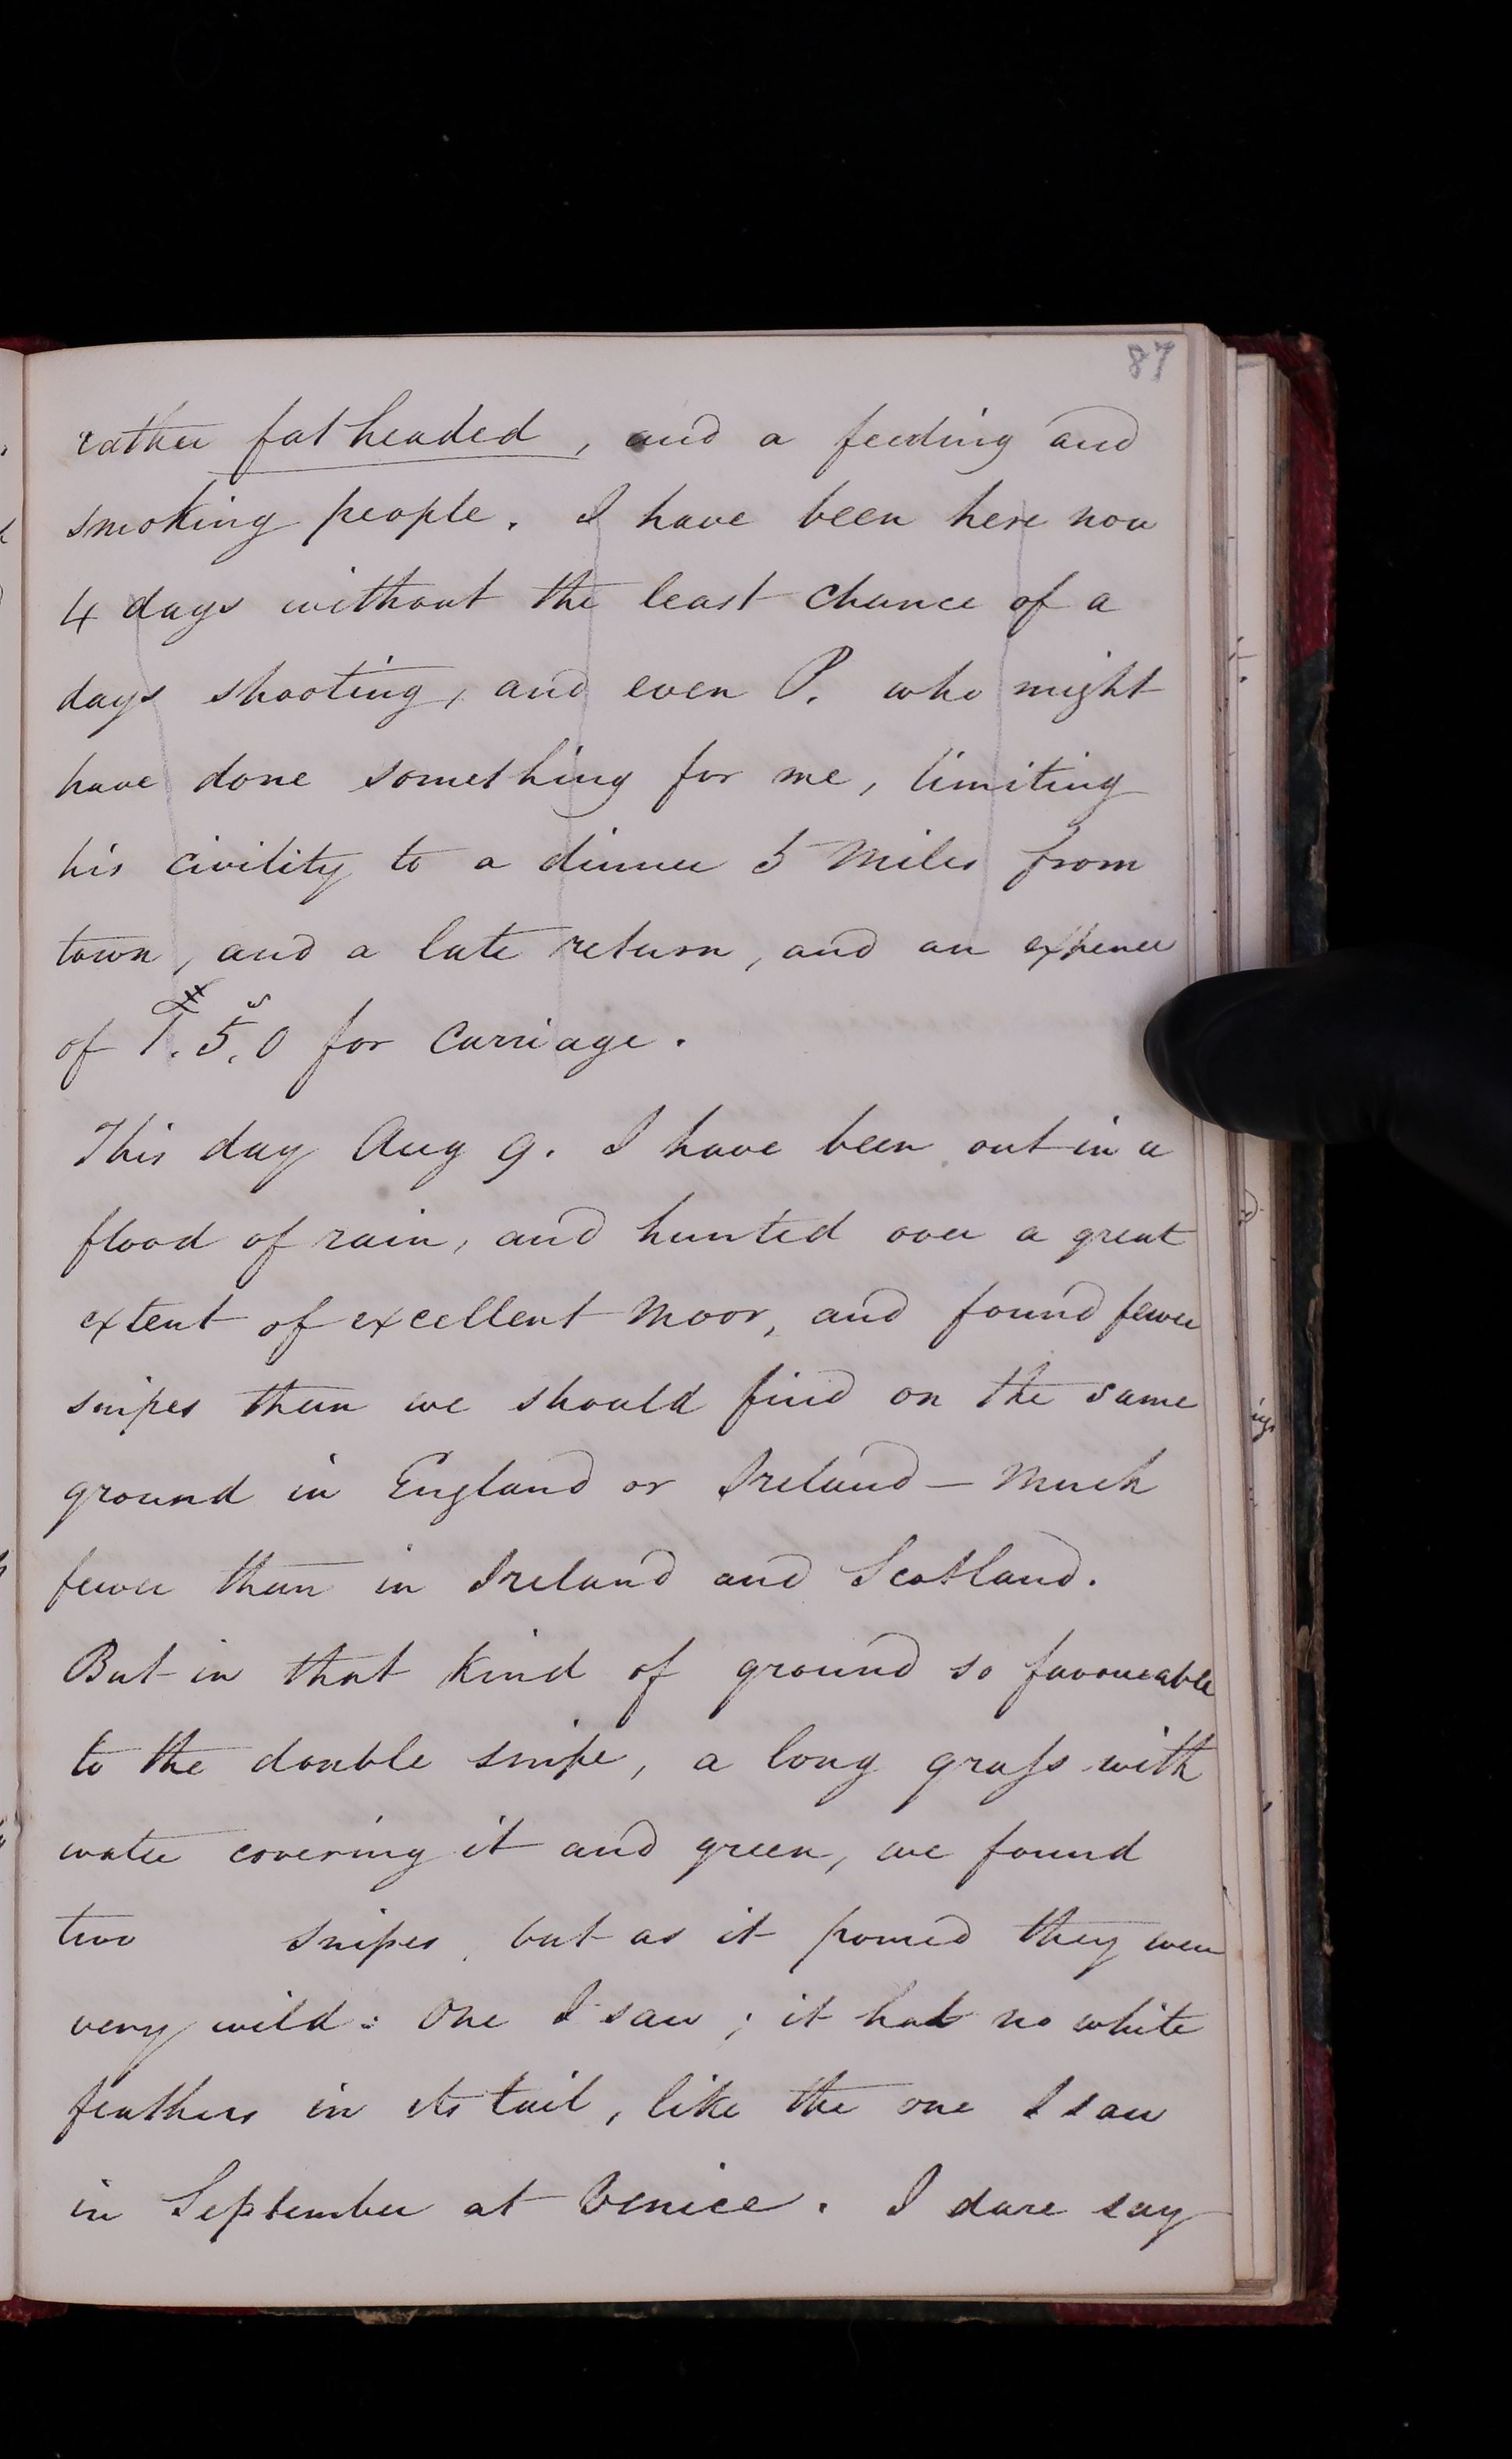 87
rather fat headed, and a feeding and
smoking people. I have been here now
4 days without the least chance of a
days shooting, and even P. who might
have done something for me, limiting
his civility to a dinner 5 Miles from
town, and a late return, and an expence
of £1. 5s. 0 for Carriage.
This day Aug 9. I have been out in a
flood of rain, and hunted over a great
extent of excellent Moor, and found fewer
snipes than we should find on the same
ground in England or Ireland – Much
fewer than in Ireland and Scotland.
But in that Kind of ground so favourable
to the double snipe, a long grass with
water covering it and green, we found
two snipes, but as it poured they were
very wild: One I saw; it had no white
feathers in its tail, like the one I saw
in September at Venice. I dare say